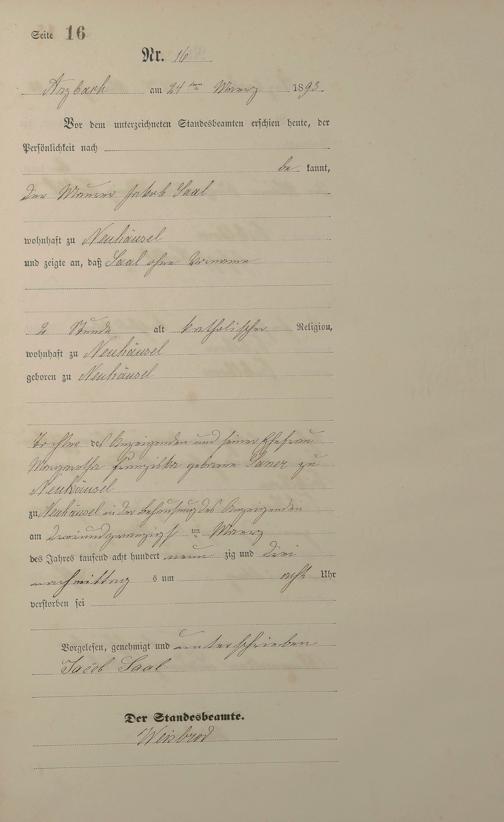 Seite 16
Nr. 16
Arzbach am 24ten Maerz 1893
Vor dem unterzeichneten Standesbeamten erschien heute, der
Persönlichkeit nach
be kannt,
der Maurer Jakob Saal
wohnhaft zu Neuhäusel
und zeigte an, daß Saal ohne Vorname
2 Stunde alt katholischer Religion,
wohnhaft zu Neuhäusel
geboren zu Neuhäusel
Tochter des Anzeigenden und seiner Ehefrau
Margaretha Franziska geborene zu
Neuhäusel
zu Neuhäusel in der Behausung des Anzeigenden
am dreiundzwanzigsten Maerz
des Jahres tausend acht hundert neun zig und drei
nachmittag s um acht Uhr
verstorben sei
Vorgelesen, genehmigt und unterschrieben
Jacob Saal
Der Standesbeamte.
Weisbrod